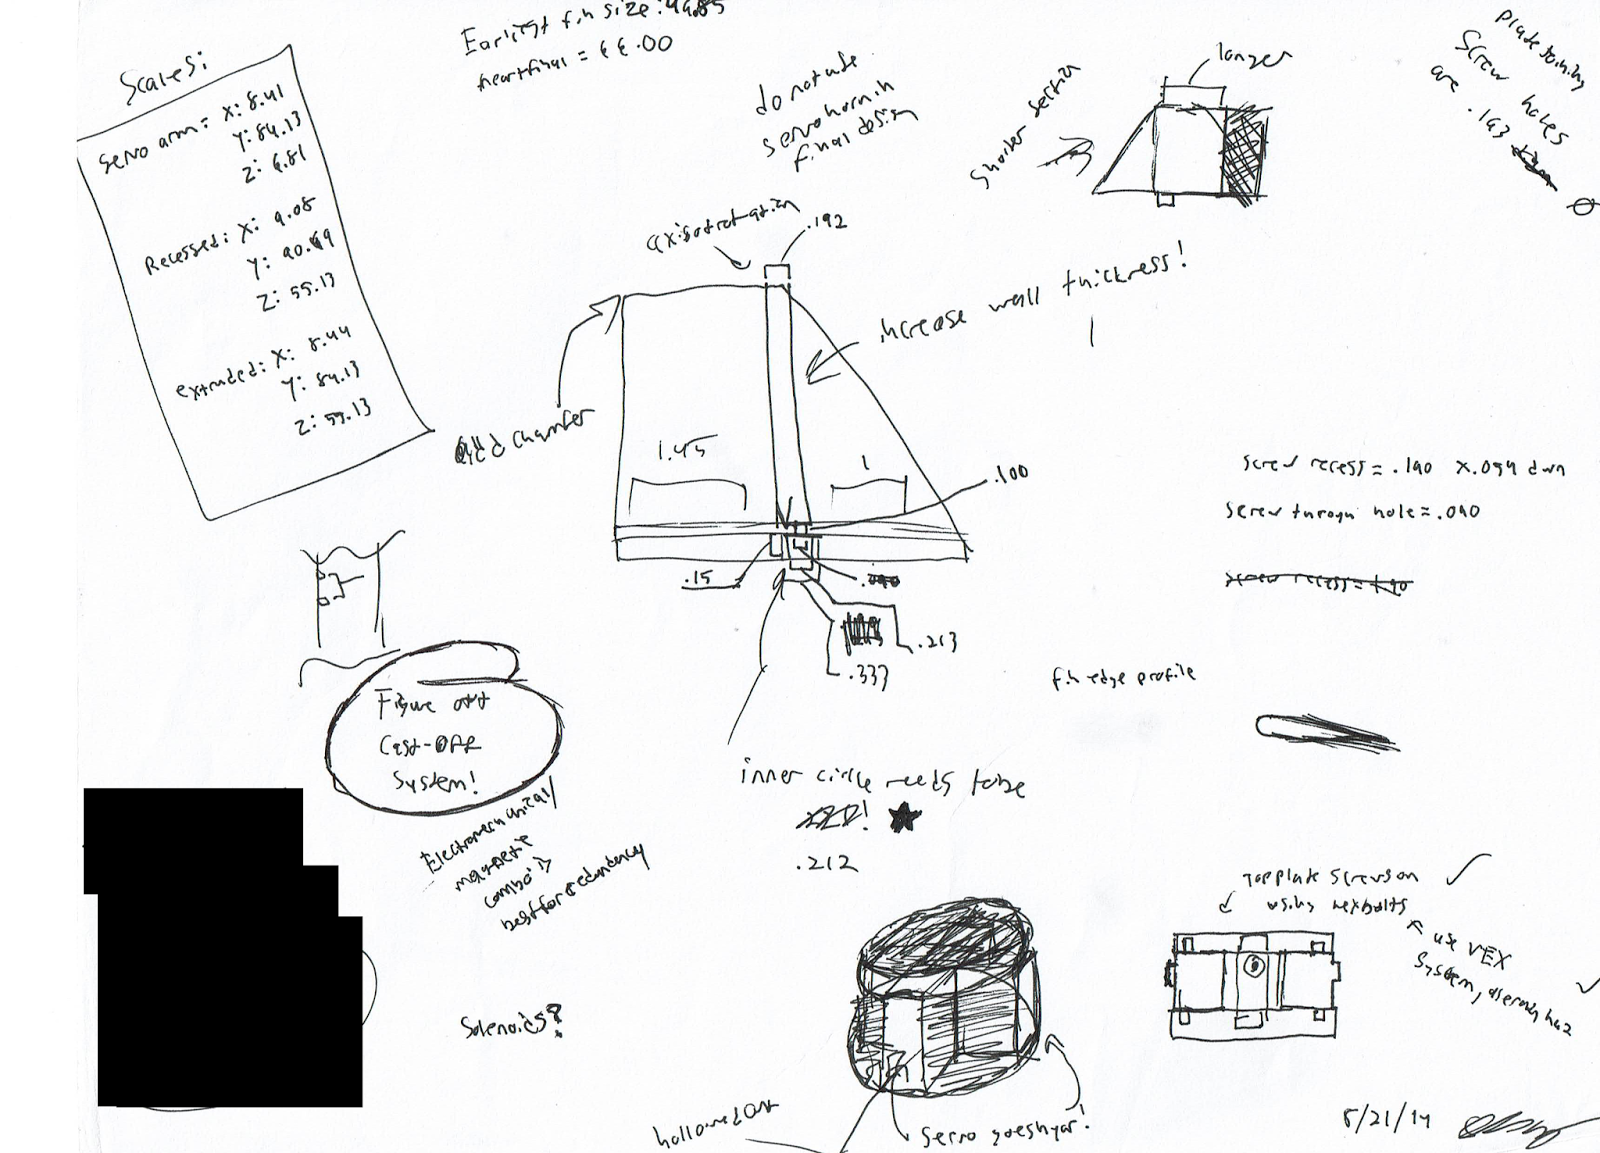 Scales:
Servo arm: X: 8.41
Y: 84.13
Z: 6.81
Recessed: X: 9.08
Y: 90.69
Z: 55.13
extruded: X: 8.44
Y: 84.13
Z: 55.13
Earliest fin size:
do not use
servo horn in
final design
shorter section
longer
Screw holes
are .193
axis of rotation
.192
increase wall thickness!
add chamfer
1.45
1
.100
.15
.213
.337
screw recess = .190 x .094 dwn
screw through hole = .090
screw recess = .190
fin edge profile
Figure out
Cast-OFF
System!
Electromechanical/
magnetic
combo is
best for redundancy
Solenoids?
inner circle needs to be
.212
hollowed out
servo goes hyar!
Top plate screws on
using hexbolts
use VEX
system,
8/21/14